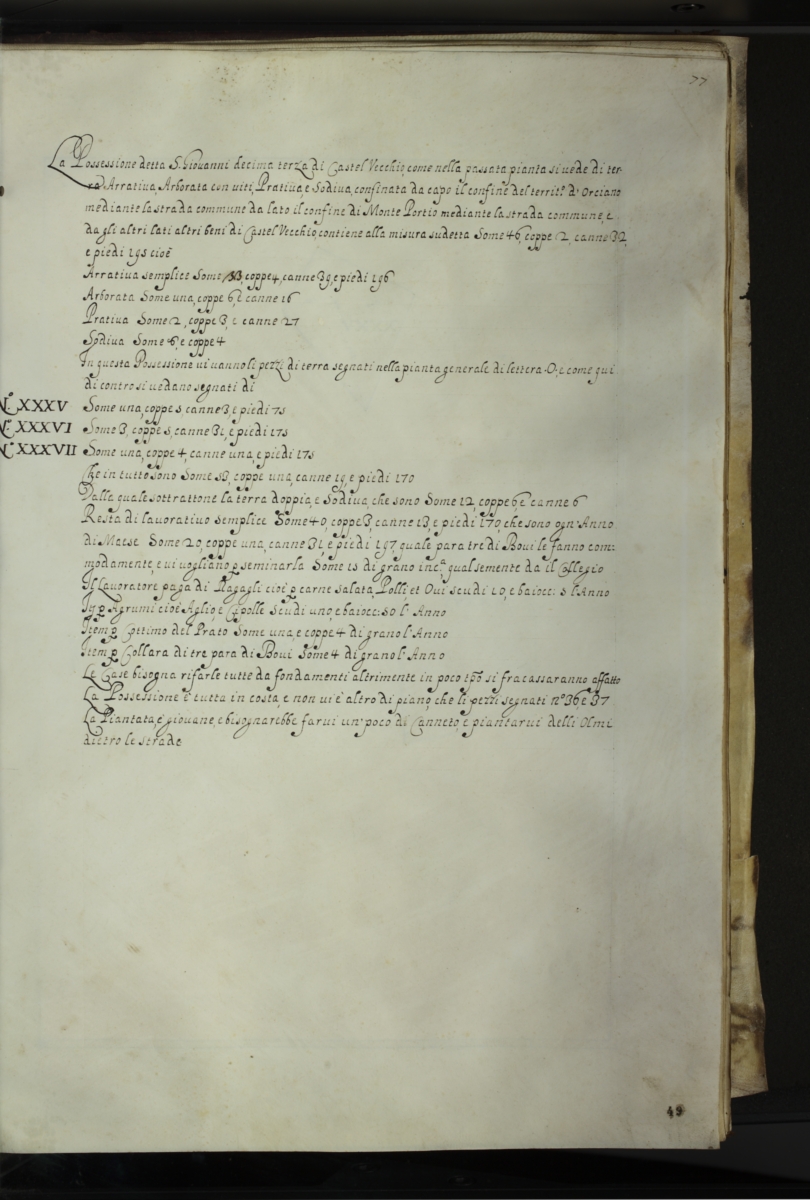 77
La Possessione detta S. Giovanni decima terza di Castel Vecchio, come nella passata pianta si uede di ter-
ra Arratiua Arborata con uiti, Pratiua, e Sodiua, confinata da capo il confine del territ.º d'Orciano
mediante la strada commune da lato il confine di Monte Portio mediante la strada commune, e
dagli altri lati altri beni di Castel Vecchio, contiene alla misura sudetta Some 46, coppe 2, canne 32,
e piedi 195 cioè
Arratiua semplice Some coppe 4, canne 39, e piedi 196
Arborata Some una, coppe 6, e canne 16
Pratiua Some 2, coppe 3, e canne 27
Sodiua Some 6, e coppe 4
In questa Possessione ui uanno li pezzi di terra segnati nella pianta generale di lettera .O, e come qui
di contro si uedano segnati di
N.º XXXV Some una, coppe 5, canne 3, e piedi 75
N.º XXXVI Some 3, coppe 5, canne 31, e piedi 175
N.º XXXVII Some una, coppe 4, canne una, e piedi 175
Che in tutto sono Some 53, coppe una, canne 19, e piedi 170
Dalla quale sottrattone la terra doppia, e Sodiua, che sono Some 12, coppe 6 e canne 6
Resta di lauoratiuo semplice Some 40, coppe 3, canne 13, e piedi 170, che sono ogn'Anno
di Maese Some 20, coppe una, canne 31, e piedi 197 quale para tre di Boui le fanno com:
modamente, e ui uogliano p seminarla Some 15 di grano inc.ª qual semente da il Collegio
Il Lauoratore paga di Plagagli cioè p carne salata, Polli, et Oui scudi 10, e baiocc: 5 l'Anno
It p Agrumi cioè Aglio, e Cipolle Scudi uno, e baiocc: 50 l'Anno
Item p Cottimo del Prato Some una, e coppe 4 di grano l'Anno
Item p Collara di tre para di Boui Some 4 di grano l'Anno
Le Case bisogna rifarle tutte da fondamenti altrimente in poco tpo si fracassaranno affatto
La Possessione è tutta in costa, e non ui è altro di piano, che li pezzi segnati nº 36, e 37
La Piantata, è giouane, e bisognarebbe farui un' poco di Canneto, e piantarui delli Olmi
dietro le strade
49